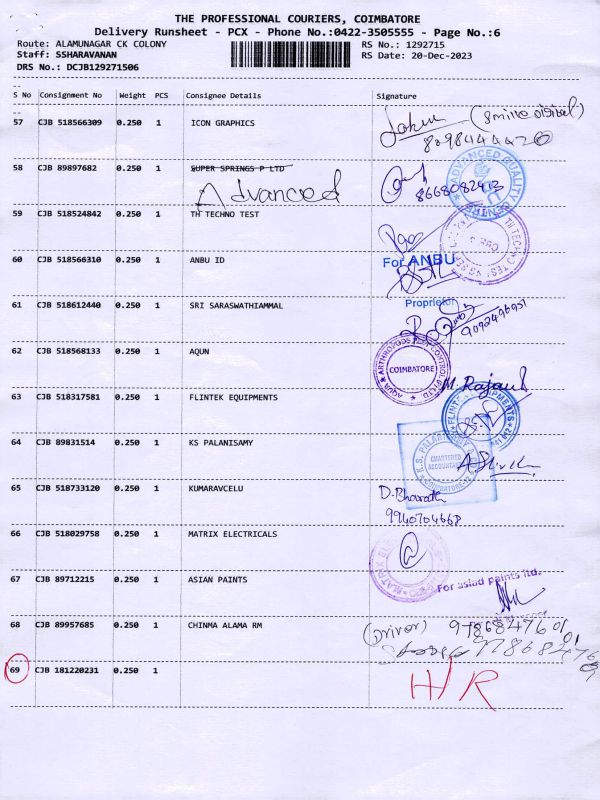 THE PROFESSIONAL COURIERS, COIMBATORE
Delivery Runsheet - PCX - Phone No.:0422-3505555 - Page No.:6
Route: ALAMUNAGAR CK COLONY RS No.: 1292715
Staff: SSHARAVANAN RS Date: 20-Dec-2023
DRS No.: DCJB129271506
S No Consignment No Weight PCS Consignee Details Signature
57 CJB 518566309 0.250 1 ICON GRAPHICS
8098444420
58 CJB 89897682 0.250 1 SUPER SPRINGS P LTD
Advanced
8668082413
ADVANCED QUALITY CENTRE
59 CJB 518524842 0.250 1 TH TECHNO TEST
60 CJB 518566310 0.250 1 ANBU ID
For ANBU
Proprietor
61 CJB 518612440 0.250 1 SRI SARASWATHIAMMAL
9092496951
62 CJB 518568133 0.250 1 AQUN
COIMBATORE
M. Rajan
63 CJB 518317581 0.250 1 FLINTEK EQUIPMENTS
64 CJB 89831514 0.250 1 KS PALANISAMY
CHARTERED
ACCOUNTANT
65 CJB 518733120 0.250 1 KUMARAVCELU
D. Bharath
9940704668
66 CJB 518029758 0.250 1 MATRIX ELECTRICALS
67 CJB 89712215 0.250 1 ASIAN PAINTS
For asian paints ltd.
68 CJB 89957685 0.250 1 CHINMA ALAMA RM
(Driver)
69 CJB 181220231 0.250 1
H/R